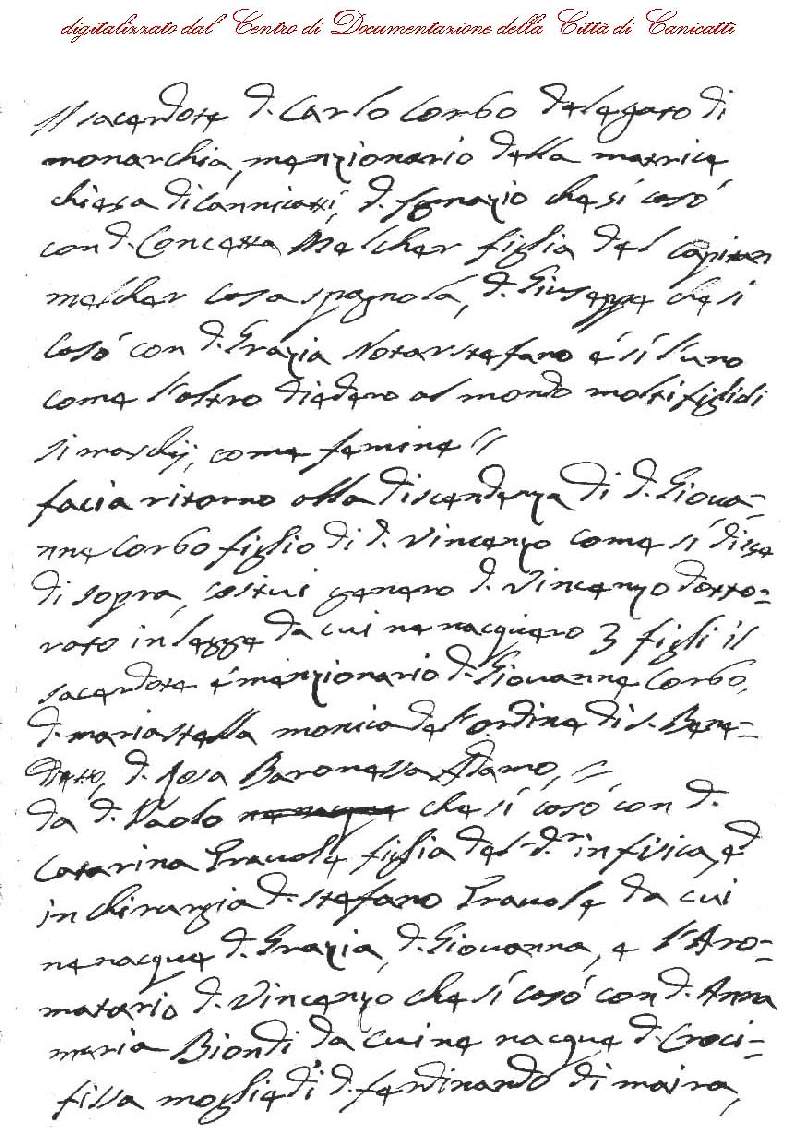 digitalizzato dal Centro di Documentazione della Città di Canicattì
Il sacerdote d. Carlo Corbo delegato di
monarchia, menzionario della matrice
chiesa di Cannicatti, d. Ignazio che si casó
con d. Concetta Melcher figlia del capitan
melcher casa spagnola, d. Giuseppe che si
casó con d. Grazia Notarstefano é si l'uno
come l'altro diedero al mondo molti figli di
si maschij, come femine //
facia ritorno alla discendenza di d. Giova=
nne Corbo figlio di d. Vincenzo come si disse
di sopra, costui genero d. Vincenzo dotto=
rato in legge da cui ne nacquero 3 figli il
sacerdote é menzionario d. Giovanne Corbo,
d. maria stella monica dell'ordine di s. Bene=
detto, d. Rosa Baronessa Adamo, //
da d. Paolo ne nacque che si casó con d.
Catarina Travole figlia del d.r in fisica, é
in chirurgia d. Stefano Travole da cui
ne nacque d. Grazia, d. Giovanna, e l'Aro=
matario d. Vincenzo che si casó con d. Anna
maria Biondi da cui ne nacque d. Croci=
fissa moglie di d. ferdinando di maira,